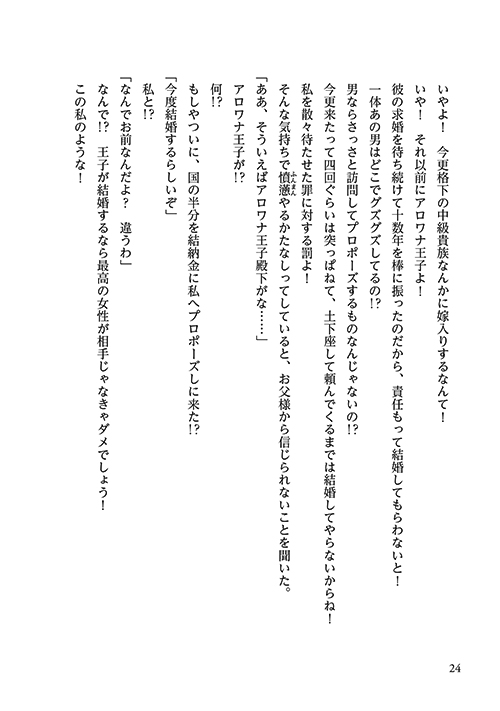 いやよ！　今更格下の中級貴族なんかに嫁入りするなんて！
いや！　それ以前にアロワナ王子よ！
彼の求婚を待ち続けて十数年を棒に振ったのだから、責任もって結婚してもらわないと！
一体あの男はどこでグズグズしてるの!?
男ならさっさと訪問してプロポーズするものなんじゃないの!?
今更来たって四回ぐらいは突っぱねて、土下座して頼んでくるまでは結婚してやらないからね！
私を散々待たせた罪に対する罰よ！
そんな気持ちで憤懣やるかたなしってしていると、お父様から信じられないことを聞いた。
「ああ、そういえばアロワナ王子殿下がな……」
アロワナ王子が!?
何!?
もしやついに、国の半分を結納金に私へプロポーズしに来た!?
「今度結婚するらしいぞ」
私と!?
「なんでお前なんだよ？　違うわ」
なんで!?　王子が結婚するなら最高の女性が相手じゃなきゃダメでしょう！
この私のような！
24